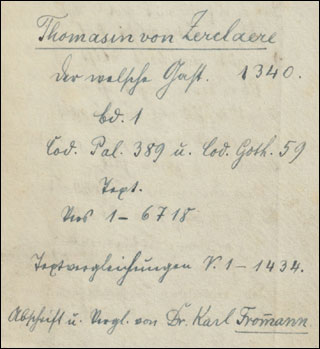 Thomasin von Zerclaere
Der welsche Gast. 1340.
Bd. 1
Cod. Pal. 389 u. Cod. Goth. 59
Text.
Vers 1-6718
Textvergleichungen V. 1-1434.
Abschrift u. Vergl. von Dr. Karl From̅ann.